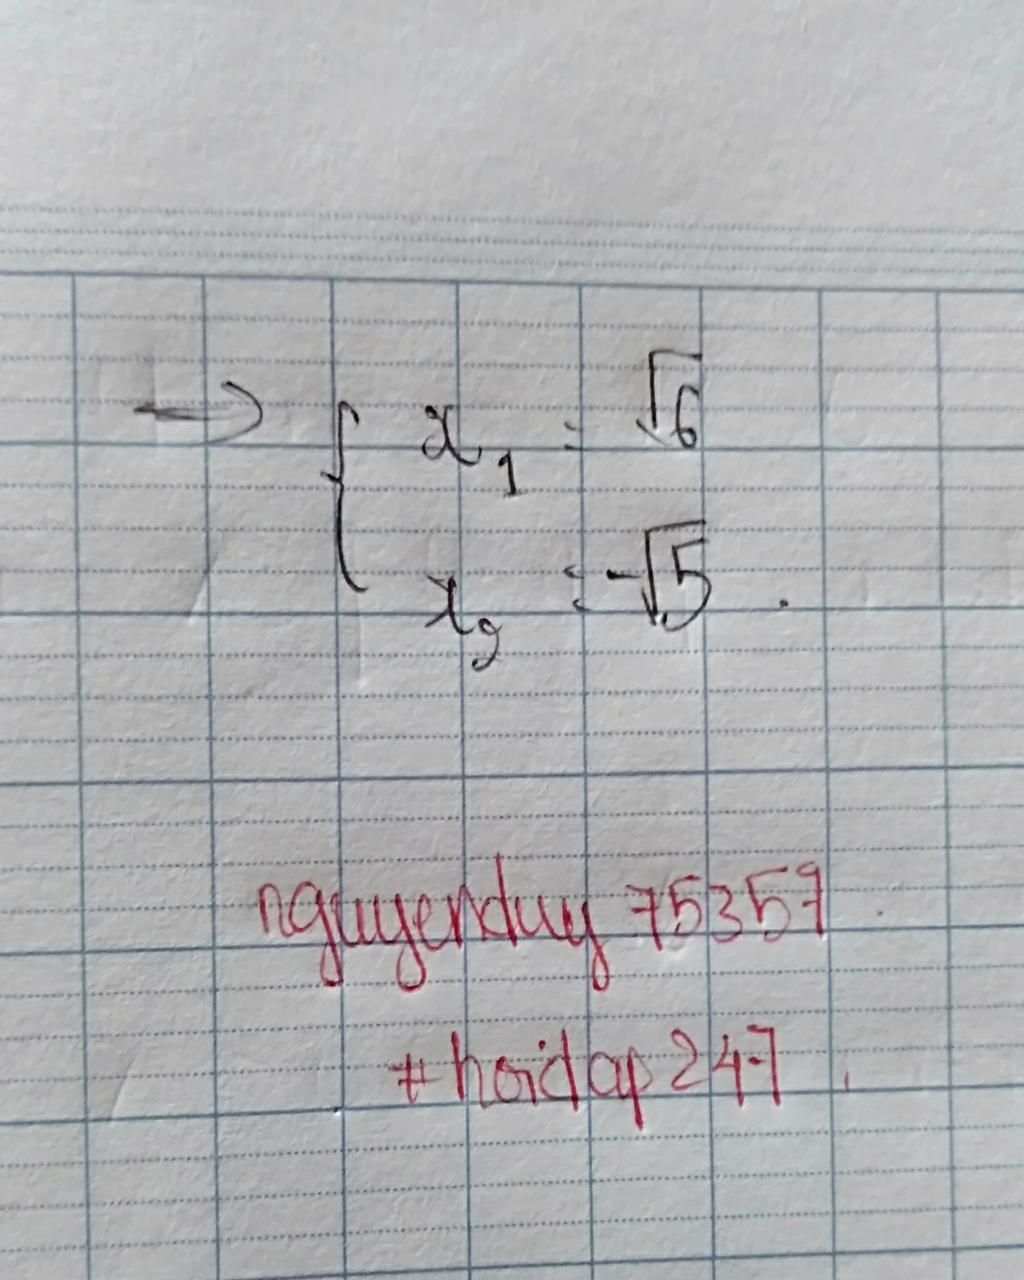 → { x₁ = √6
x₂ = -√5 .
nguyenduy 75359
#hoidap247